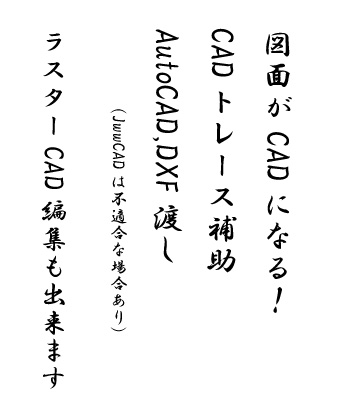 図面が CAD になる！
CAD トレース補助
AutoCAD,DXF 渡し
（JwwCAD は不適合な場合あり）
ラスター CAD 編集も出来ます